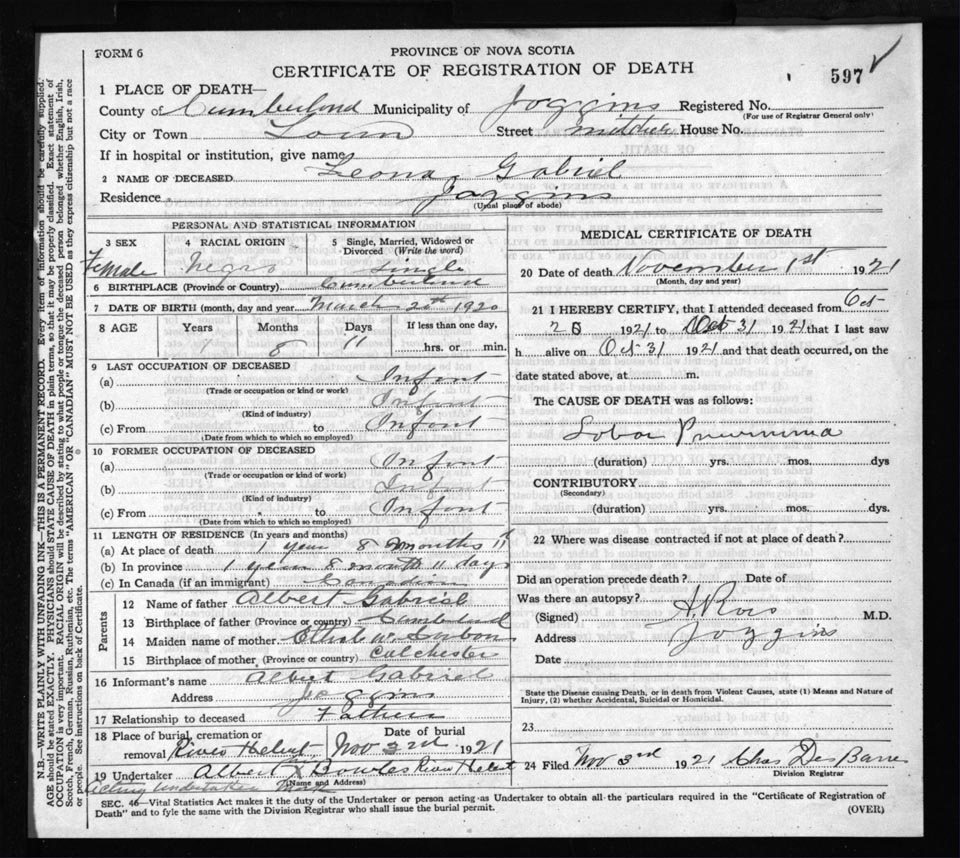 FORM 6
PROVINCE OF NOVA SCOTIA
CERTIFICATE OF REGISTRATION OF DEATH
597
1 PLACE OF DEATH—
County of Cumberland Municipality of Joggins Registered No.
(For use of Registrar General only)
City or Town Town Street House No.
If in hospital or institution, give name
2 NAME OF DECEASED Leona Gabriel
Residence Joggins
(Usual place of abode)
PERSONAL AND STATISTICAL INFORMATION
3 SEX Female
4 RACIAL ORIGIN Negro
5 Single, Married, Widowed or Divorced (Write the word) Single
6 BIRTHPLACE (Province or Country) Cumberland
7 DATE OF BIRTH (month, day and year) March 20th 1920
8 AGE Years Months Days If less than one day,
1 8 11 hrs. or min.
9 LAST OCCUPATION OF DECEASED
(a) Infant
(Trade or occupation or kind of work)
(b) Infant
(Kind of industry)
(c) From to Infant
(Date from which to which so employed)
10 FORMER OCCUPATION OF DECEASED
(a) Infant
(Trade or occupation or kind of work)
(b) Infant
(Kind of industry)
(c) From to Infant
(Date from which to which so employed)
11 LENGTH OF RESIDENCE (In years and months)
(a) At place of death 1 year 8 months 11
(b) In province 1 year 8 month 11 days
(c) In Canada (if an immigrant) Canadian
Parents
12 Name of father Albert Gabriel
13 Birthplace of father (Province or country) Cumberland
14 Maiden name of mother
15 Birthplace of mother (Province or country) Colchester
16 Informant's name Albert Gabriel
Address Joggins
17 Relationship to deceased Father
18 Place of burial, cremation or removal River Hebert
Date of burial Nov 3rd 1921
19 Undertaker Albert X Bowles River Hebert
(Name and Address)
Acting Undertaker mark
MEDICAL CERTIFICATE OF DEATH
20 Date of death November 1st 1921
(Month, day and year)
21 I HEREBY CERTIFY, that I attended deceased from Oct
28 1921 to Oct 31 1921 that I last saw
h alive on Oct 31 1921 and that death occurred, on the
date stated above, at m.
The CAUSE OF DEATH was as follows:
Lobar Pneumonia
(duration) yrs. mos. dys
CONTRIBUTORY
(Secondary)
(duration) yrs. mos. dys.
22 Where was disease contracted if not at place of death?
Did an operation precede death? Date of
Was there an autopsy?
(Signed) Ross M.D.
Address Joggins
Date
State the Disease causing Death, or in death from Violent Causes, state (1) Means and Nature of
Injury, (2) whether Accidental, Suicidal or Homicidal.
23
24 Filed Nov 3rd 1921 Chas Des Barres
Division Registrar
SEC. 46—Vital Statistics Act makes it the duty of the Undertaker or person acting as Undertaker to obtain all the particulars required in the "Certificate of Registration of
Death" and to fyle the same with the Division Registrar who shall issue the burial permit.
(OVER)
N.B.—WRITE PLAINLY WITH UNFADING INK—THIS IS A PERMANENT RECORD. Every item of information should be carefully supplied.
AGE should be stated EXACTLY. PHYSICIANS should STATE CAUSE OF DEATH in plain terms, so that it may be properly classified. Exact statement of
OCCUPATION is very important. RACIAL ORIGIN will be described by stating to what people or tongue the deceased person belonged whether English, Irish,
Scotch, French, German, Russian, Ruthenian, etc. The terms "AMERICAN" OR "CANADIAN" MUST NOT BE USED as they express citizenship but not a race
or people. See instructions on back of Certificate.